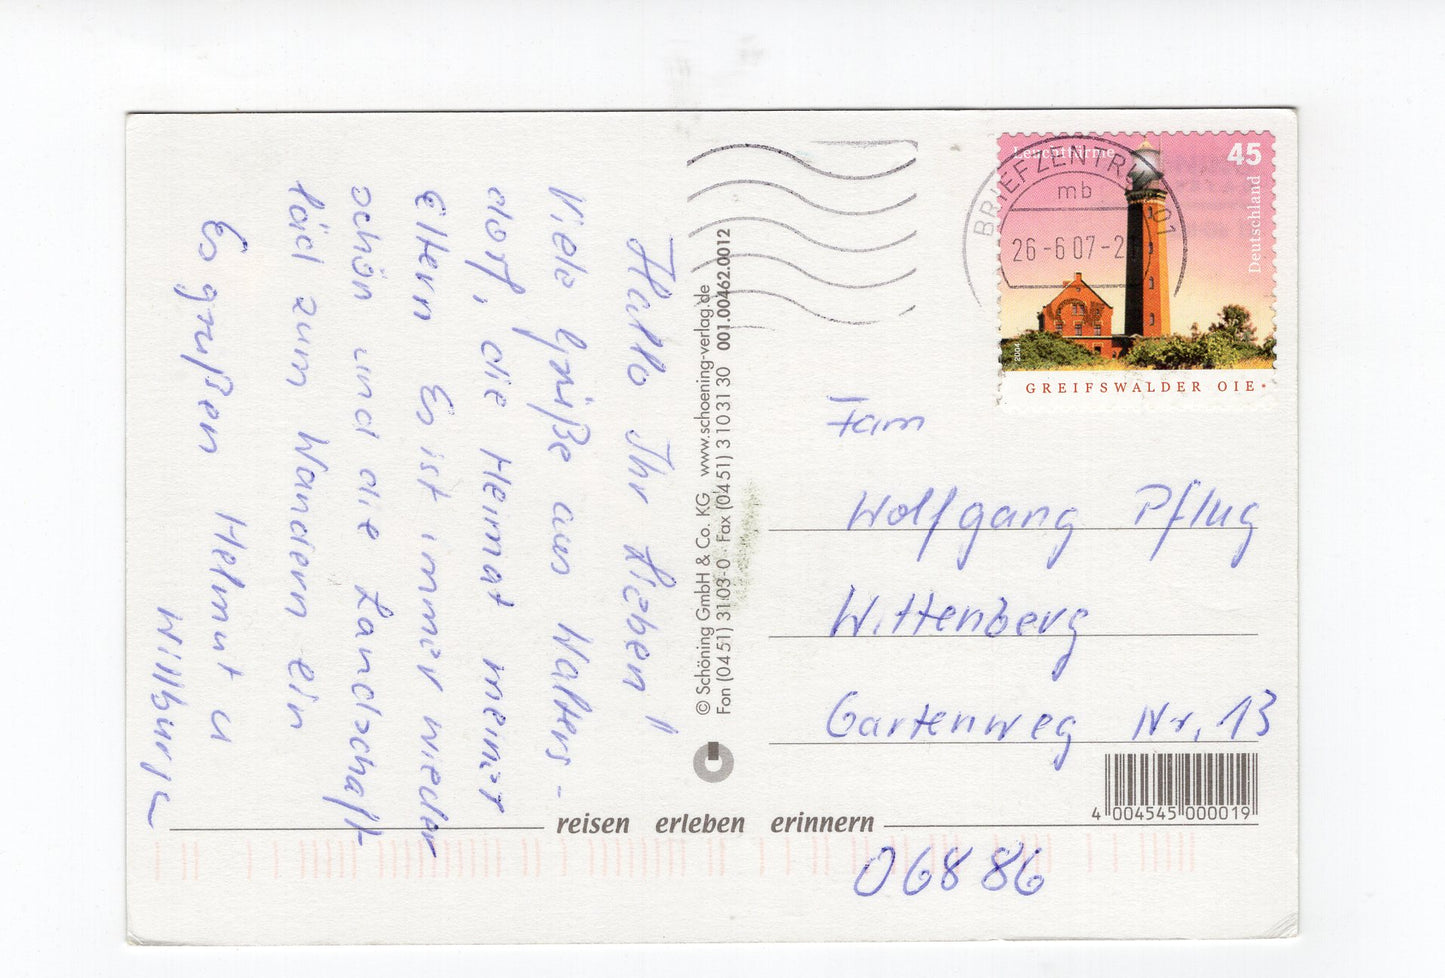 Hallo Ihr Lieben!
Viele Grüße aus Walters-
dorf, die Heimat meiner
Eltern Es ist immer wieder
schön und die Landschaft
läd zum Wandern ein
Es grüßen Helmut u
Willburg
© Schöning GmbH & Co. KG www.schoening-verlag.de
Fon (0451) 3103-0 Fax (0451) 3103130 001.00462.0012
Leuchttürme 45
Deutschland
2004
GREIFSWALDER OIE
BRIEFZENTRUM 01
mb
26-6 07-2
Fam
Wolfgang Pflug
Wittenberg
Gartenweg Nr. 13
4 004545 000019
reisen erleben erinnern
06886